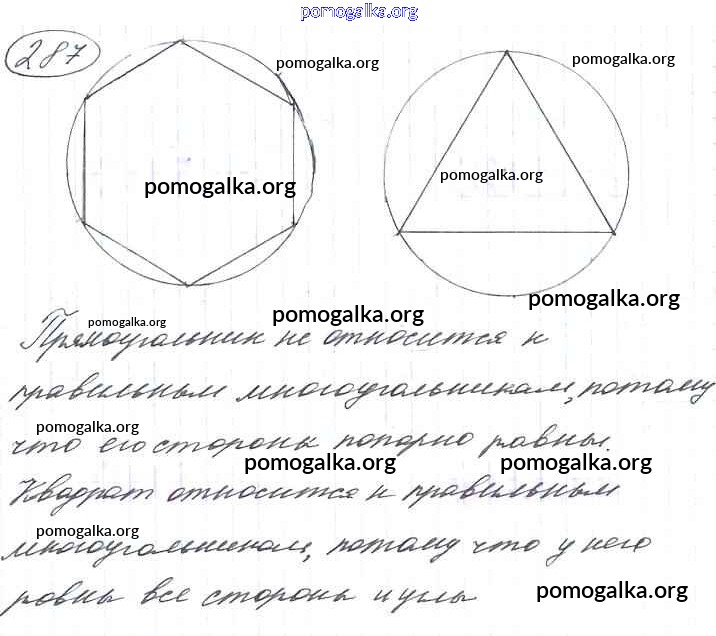 pomogalka.org
287
pomogalka.org
pomogalka.org
pomogalka.org
pomogalka.org
pomogalka.org
pomogalka.org
pomogalka.org
Прямоугольник не относится к
правильным многоугольникам, потому
pomogalka.org
что его стороны попарно равны.
pomogalka.org
pomogalka.org
Квадрат относится к правильным
pomogalka.org
многоугольникам, потому что у него
равны все стороны и углы
pomogalka.org